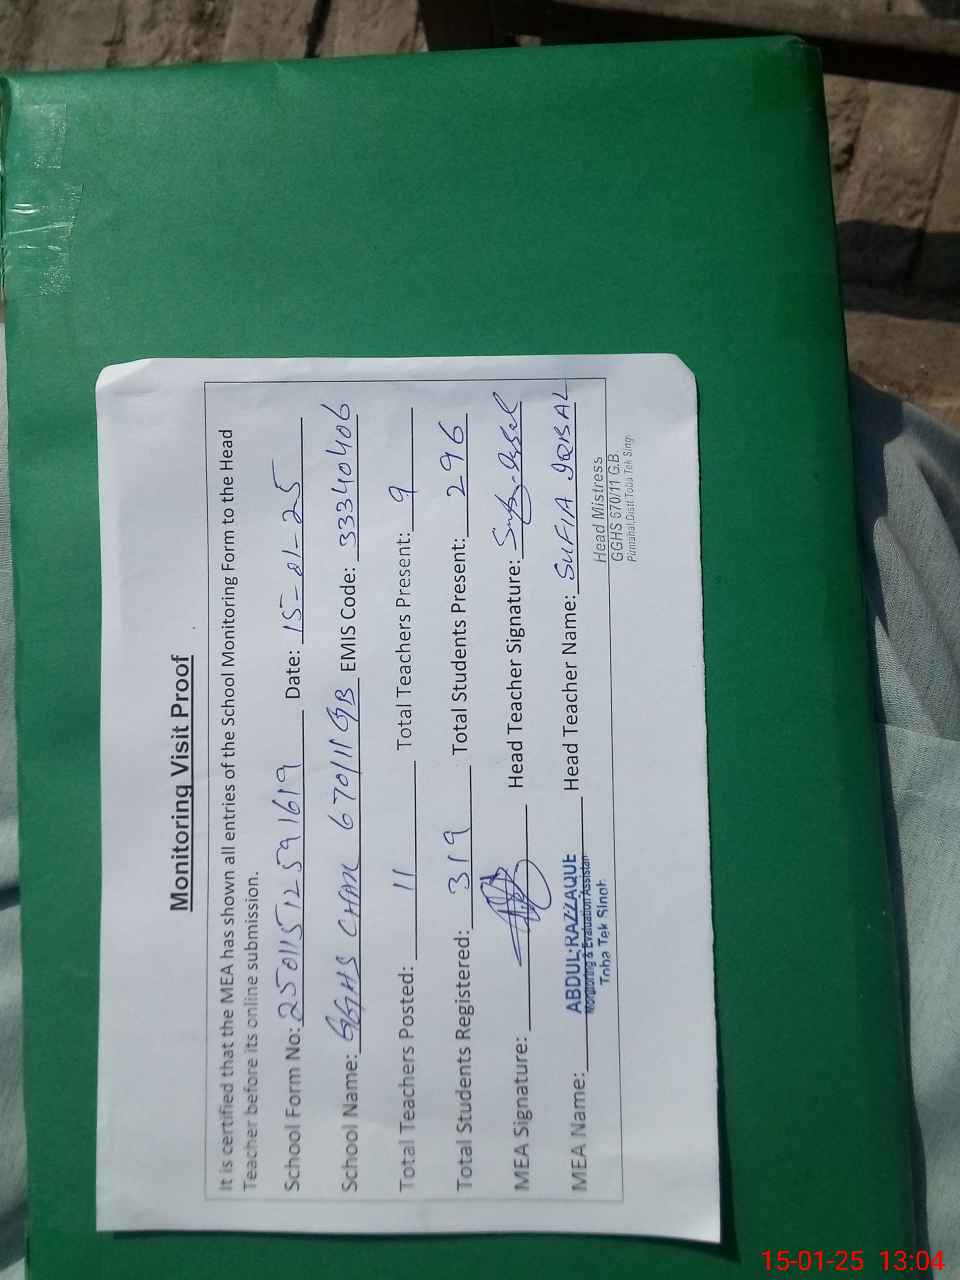 Monitoring Visit Proof
It is certified that the MEA has shown all entries of the School Monitoring Form to the Head
Teacher before its online submission.
School Form No: 25011512591619 Date: 15-01-25
School Name: GGHS CHAK 670/11 GB EMIS Code: 33340406
Total Teachers Posted: 11 Total Teachers Present: 9
Total Students Registered: 319 Total Students Present: 296
MEA Signature: Head Teacher Signature:
MEA Name: ABDUL RAZZAQUE Head Teacher Name: SUFIA IQBAL
Monitoring & Evaluation Assistan
Toba Tek Singh
Head Mistress
GGHS 670/11 G.B.
Pirmahal,Distt Toba Tek Sing
15-01-25 13:04